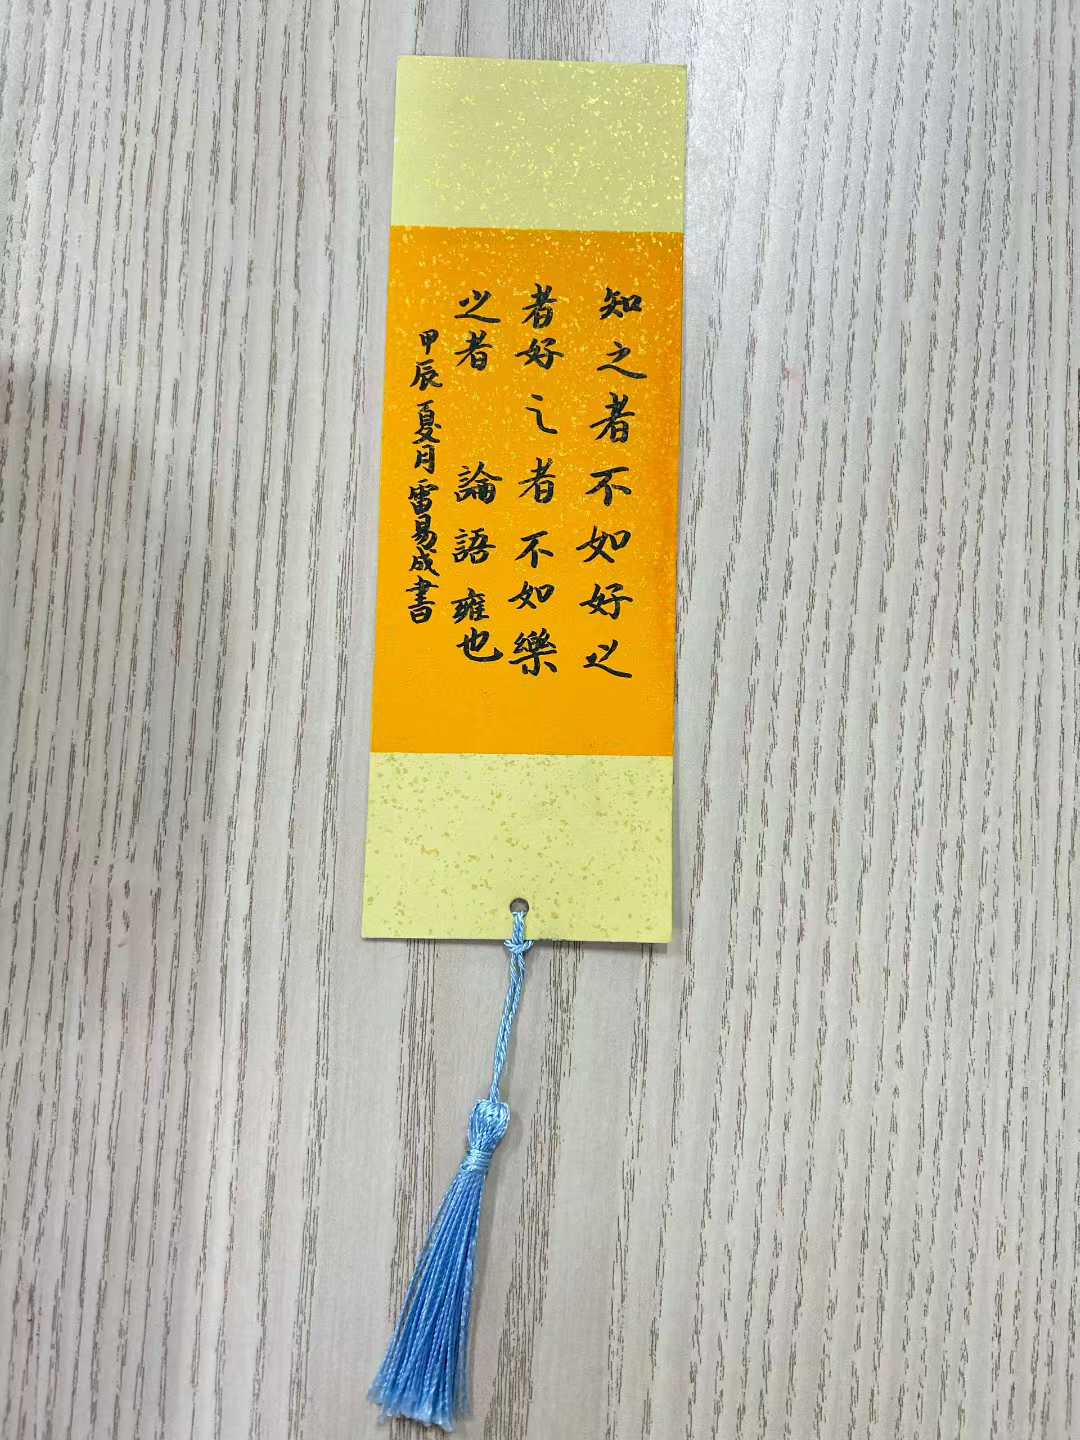 知之者不如好之
者好之者不如樂
之者 論語雍也
甲辰夏月雷易成書